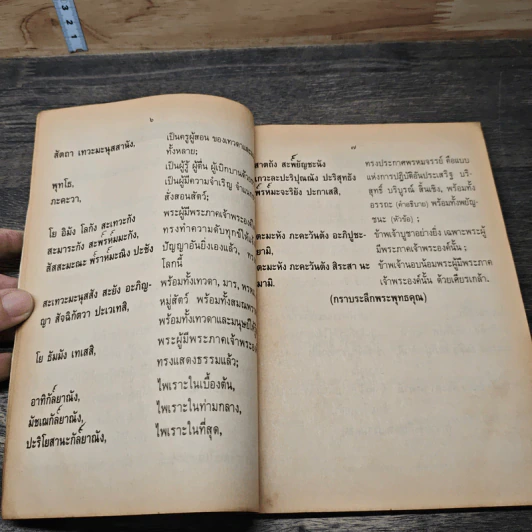 ๖
สัตถา เทวะมะนุสสานัง, เป็นครูผู้สอน ของเทวดาและ
ทั้งหลาย;
พุทโธ, เป็นผู้รู้ ผู้ตื่น ผู้เบิกบานด้วย
ภะคะวา, เป็นผู้มีความจำเริญ จำแนก
สั่งสอนสัตว์;
โย อิมัง โลกัง สะเทวะกัง พระผู้มีพระภาคเจ้าพระองค์
สะมาระกัง สะพ๎รัห๎มะกัง, ทรงทำความดับทุกข์ให้
สัสสะมะณะ พ๎ราห๎มะณิง ปะชัง ปัญญาอันยิ่งเองแล้ว,
โลกนี้
สะเทวะมะนุสสัง สะยัง อะภิญ- พร้อมทั้งเทวดา, มาร, พรหม
ญา สัจฉิกัต๎วา ปะเวเทสิ, หมู่สัตว์ พร้อมทั้งสมณพราหมณ์
พร้อมทั้งเทวดาและมนุษย์
โย ธัมมัง เทเสสิ, พระผู้มีพระภาคเจ้าพระองค์
ทรงแสดงธรรมแล้ว;
อาทิกัล๎ยาณัง, ไพเราะในเบื้องต้น,
มัชเฌกัล๎ยาณัง, ไพเราะในท่ามกลาง,
ปะริโยสานะกัล๎ยาณัง, ไพเราะในที่สุด,
๗
สาตถัง สะพ๎ยัญชะนัง ทรงประกาศพรหมจรรย์ คือแบบ
เกวะละปะริปุณณัง ปะริสุทธัง แห่งการปฏิบัติอันประเสริฐ บริ-
พ๎รัห๎มะจะริยัง ปะกาเสสิ, สุทธิ์ บริบูรณ์ สิ้นเชิง, พร้อมทั้ง
อรรถะ (คำอธิบาย) พร้อมทั้งพยัญ-
ชนะ (หัวข้อ) ;
ตะมะหัง ภะคะวันตัง อะภิปูชะ- ข้าพเจ้าบูชาอย่างยิ่ง เฉพาะพระผู้
ยามิ, มีพระภาคเจ้าพระองค์นั้น ;
ตะมะหัง ภะคะวันตัง สิระสา นะ ข้าพเจ้านอบน้อมพระผู้มีพระภาค
มามิ. เจ้าพระองค์นั้น ด้วยเศียรเกล้า.
(กราบระลึกพระพุทธคุณ)